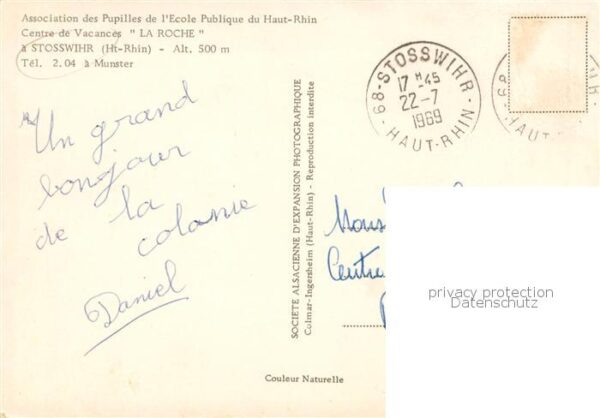 Association des Pupilles de l'Ecole Publique du Haut-Rhin
Centre de Vacances " LA ROCHE "
à STOSSWIHR (Ht-Rhin) - Alt. 500 m
Tél. 2.04 à Munster
Un grand
bonjour
de la
colonie
Daniel
SOCIETE ALSACIENNE D'EXPANSION PHOTOGRAPHIQUE
Colmar-Ingersheim (Haut-Rhin) - Reproduction interdite
68-STOSSWIHR
17 H 45
22-7
1969
HAUT-RHIN
Centre
privacy protection
Datenschutz
Couleur Naturelle